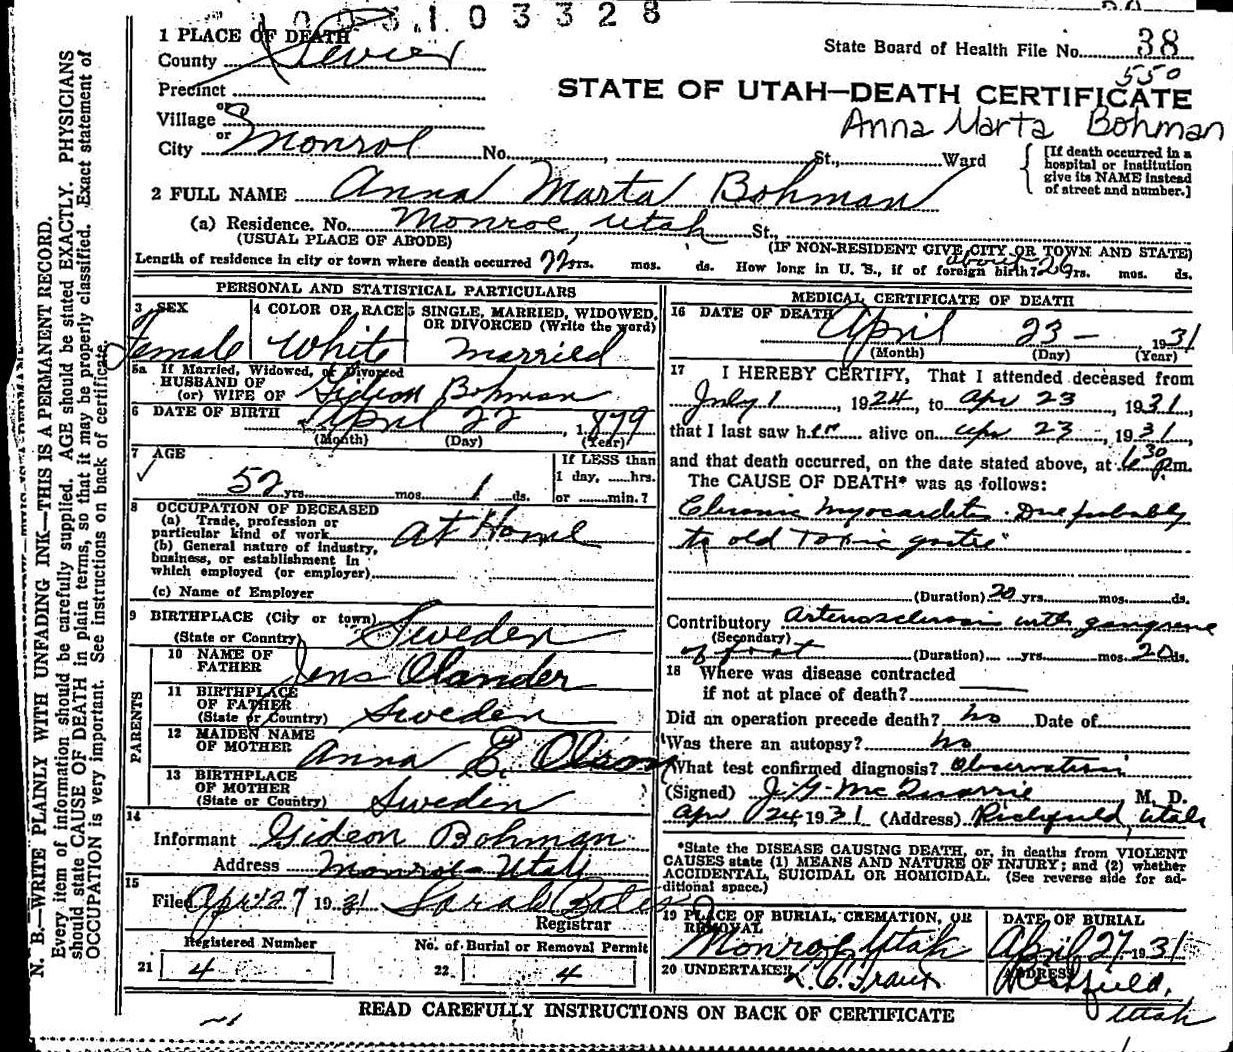 1003103328
1 PLACE OF DEATH
County Sevier
State Board of Health File No. 38
550
Precinct
STATE OF UTAH—DEATH CERTIFICATE
Anna Marta Bohman
Village
or
City Monroe No. , St., Ward
[If death occurred in a hospital or institution give its NAME instead of street and number.]
2 FULL NAME Anna Marta Bohman
(a) Residence. No. Monroe, Utah St.,
(USUAL PLACE OF ABODE) (IF NON-RESIDENT GIVE CITY OR TOWN AND STATE)
Length of residence in city or town where death occurred yrs. mos. ds. How long in U. S., if of foreign birth? about 26 yrs. mos. ds.
PERSONAL AND STATISTICAL PARTICULARS
3 SEX 4 COLOR OR RACE 5 SINGLE, MARRIED, WIDOWED, OR DIVORCED (Write the word)
Female White Married
5a If Married, Widowed, or Divorced
HUSBAND OF
(or) WIFE OF Gideon Bohman
6 DATE OF BIRTH April 22, 1879
(Month) (Day) (Year)
7 AGE
52 yrs. mos. 1 ds.
If LESS than
1 day, hrs.
or min.?
8 OCCUPATION OF DECEASED
(a) Trade, profession or
particular kind of work At Home
(b) General nature of industry,
business, or establishment in
which employed (or employer)
(c) Name of Employer
9 BIRTHPLACE (City or town)
(State or Country) Sweden
PARENTS
10 NAME OF FATHER Jens Olander
11 BIRTHPLACE OF FATHER
(State or Country) Sweden
12 MAIDEN NAME OF MOTHER Anna E. Olson
13 BIRTHPLACE OF MOTHER
(State or Country) Sweden
14
Informant Gideon Bohman
Address Monroe Utah
15
Filed Apr 27 1931 Sarah Bates
Registrar
Registered Number No. of Burial or Removal Permit
21 4 22. 4
MEDICAL CERTIFICATE OF DEATH
16 DATE OF DEATH
April 23 - , 1931
(Month) (Day) (Year)
17 I HEREBY CERTIFY, That I attended deceased from
July 1, 1924, to Apr 23, 1931,
that I last saw her alive on Apr 23, 1931,
and that death occurred, on the date stated above, at 6 30 p.m.
The CAUSE OF DEATH* was as follows:
Chronic Myocarditis. Due probably
to old Toxic goitre
(Duration) 20 yrs. mos. ds.
Contributory Arteriosclerosis with gangrene
(Secondary)
of foot (Duration) yrs. mos. 20 ds.
18 Where was disease contracted
if not at place of death?
Did an operation precede death? No Date of
Was there an autopsy? No
What test confirmed diagnosis? Observation
(Signed) J. G. McQuarrie M. D.
Apr 24, 1931 (Address) Richfield, Utah
*State the DISEASE CAUSING DEATH, or, in deaths from VIOLENT
CAUSES state (1) MEANS AND NATURE OF INJURY; and (2) whether
ACCIDENTAL, SUICIDAL OR HOMICIDAL. (See reverse side for ad-
ditional space.)
19 PLACE OF BURIAL, CREMATION, OR REMOVAL DATE OF BURIAL
Monroe, Utah April 27 1931
20 UNDERTAKER ADDRESS
Richfield,
Utah
READ CAREFULLY INSTRUCTIONS ON BACK OF CERTIFICATE
N. B.—WRITE PLAINLY WITH UNFADING INK—THIS IS A PERMANENT RECORD.
Every item of information should be carefully supplied. AGE should be stated EXACTLY. PHYSICIANS
should state CAUSE OF DEATH in plain terms, so that it may be properly classified. Exact statement of
OCCUPATION is very important. See instructions on back of certificate.